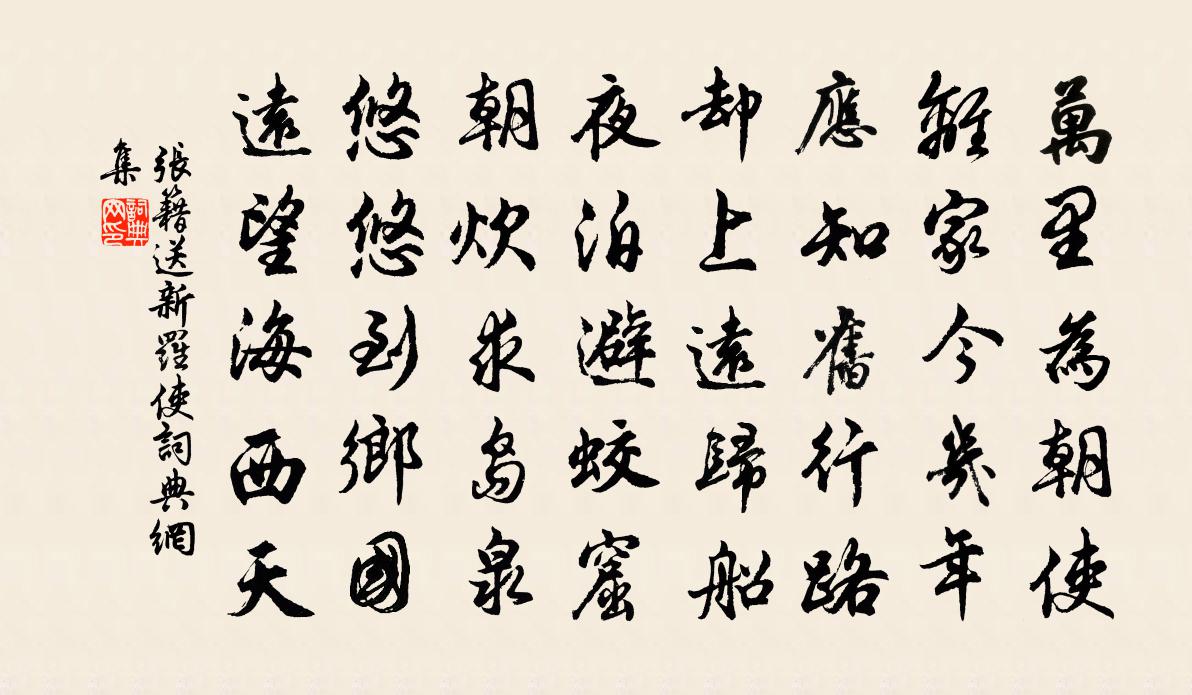 萬里為朝使
離家今幾年
應知舊行路
却上遠歸船
夜泊避蛟窟
朝炊求島泉
悠悠到鄉國
遠望海西天
張籍送新羅使詞典網
集
詞典
网印